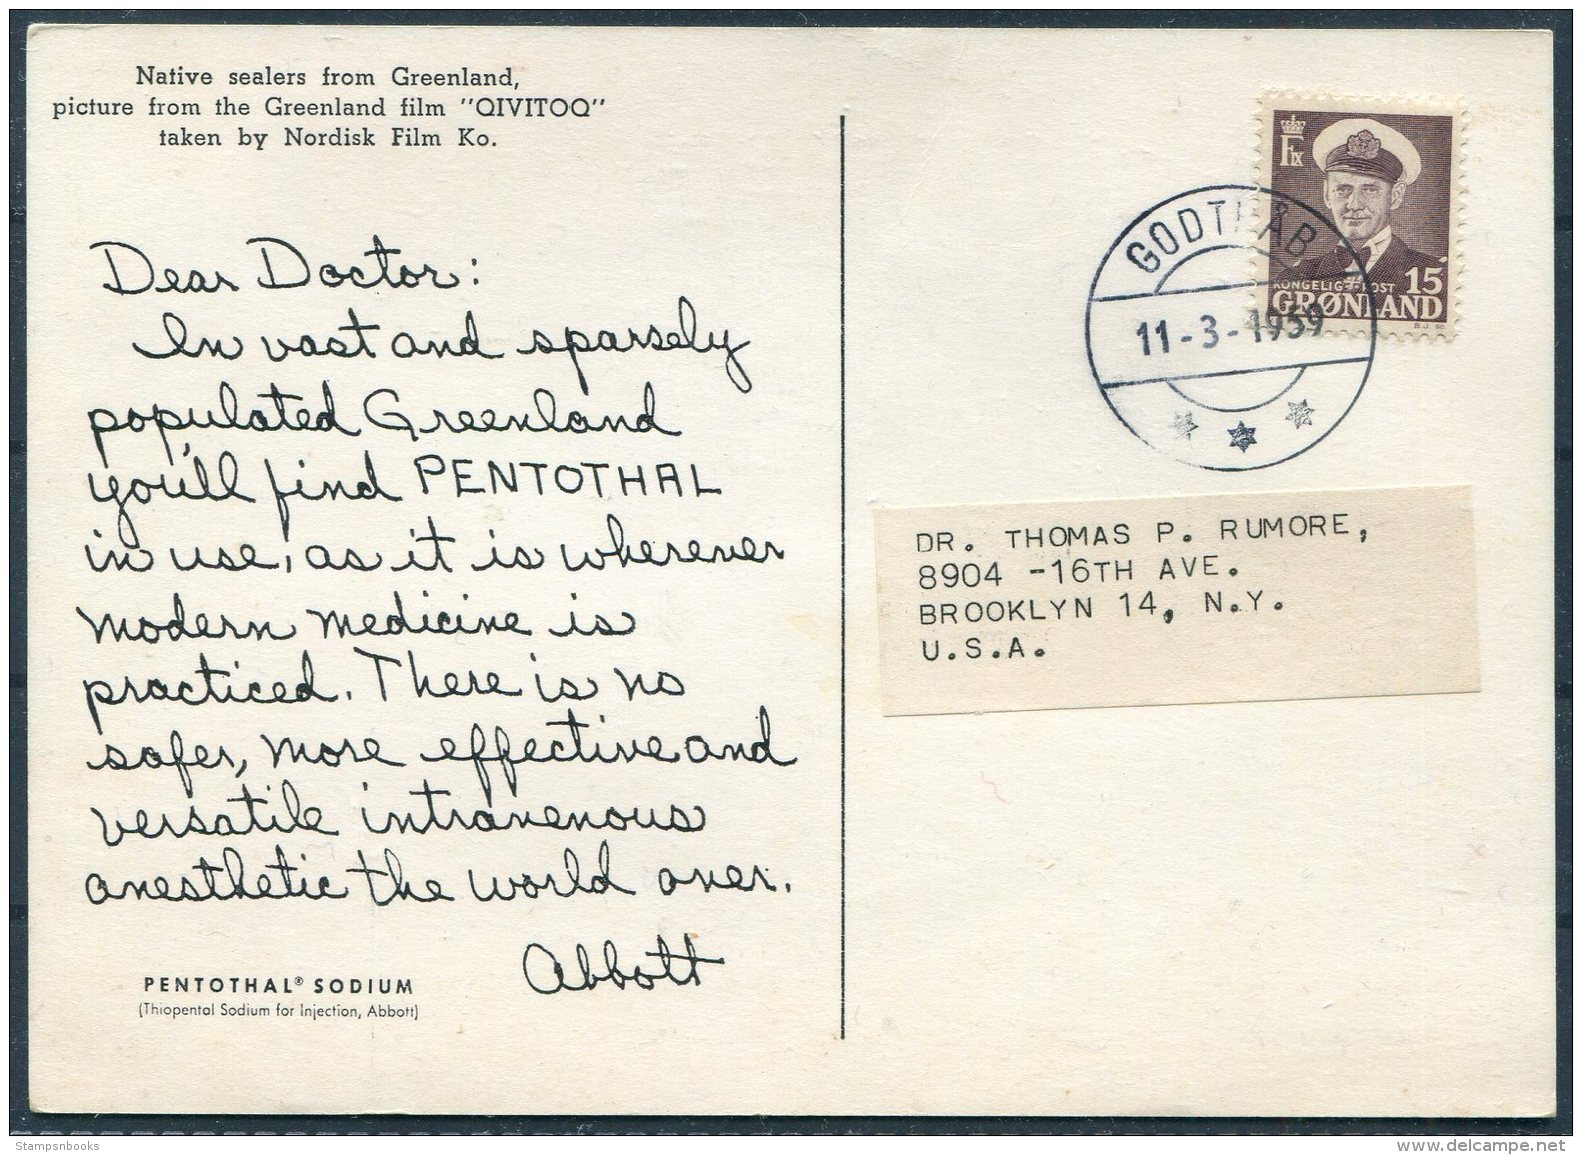 Native sealers from Greenland,
picture from the Greenland film "QIVITOQ"
taken by Nordisk Film Ko.
Dear Doctor:
In vast and sparsely
populated Greenland
you'll find PENTOTHAL
in use, as it is wherever
modern medicine is
practiced. There is no
safer, more effective and
versatile intravenous
anesthetic the world over.
Abbott
PENTOTHAL® SODIUM
(Thiopental Sodium for Injection, Abbott)
GODTHÅB
11-3-1959
KONGELIG POST 15
GRØNLAND
DR. THOMAS P. RUMORE,
8904 -16TH AVE.
BROOKLYN 14, N.Y.
U.S.A.
Stampsnbooks
delcampe.net